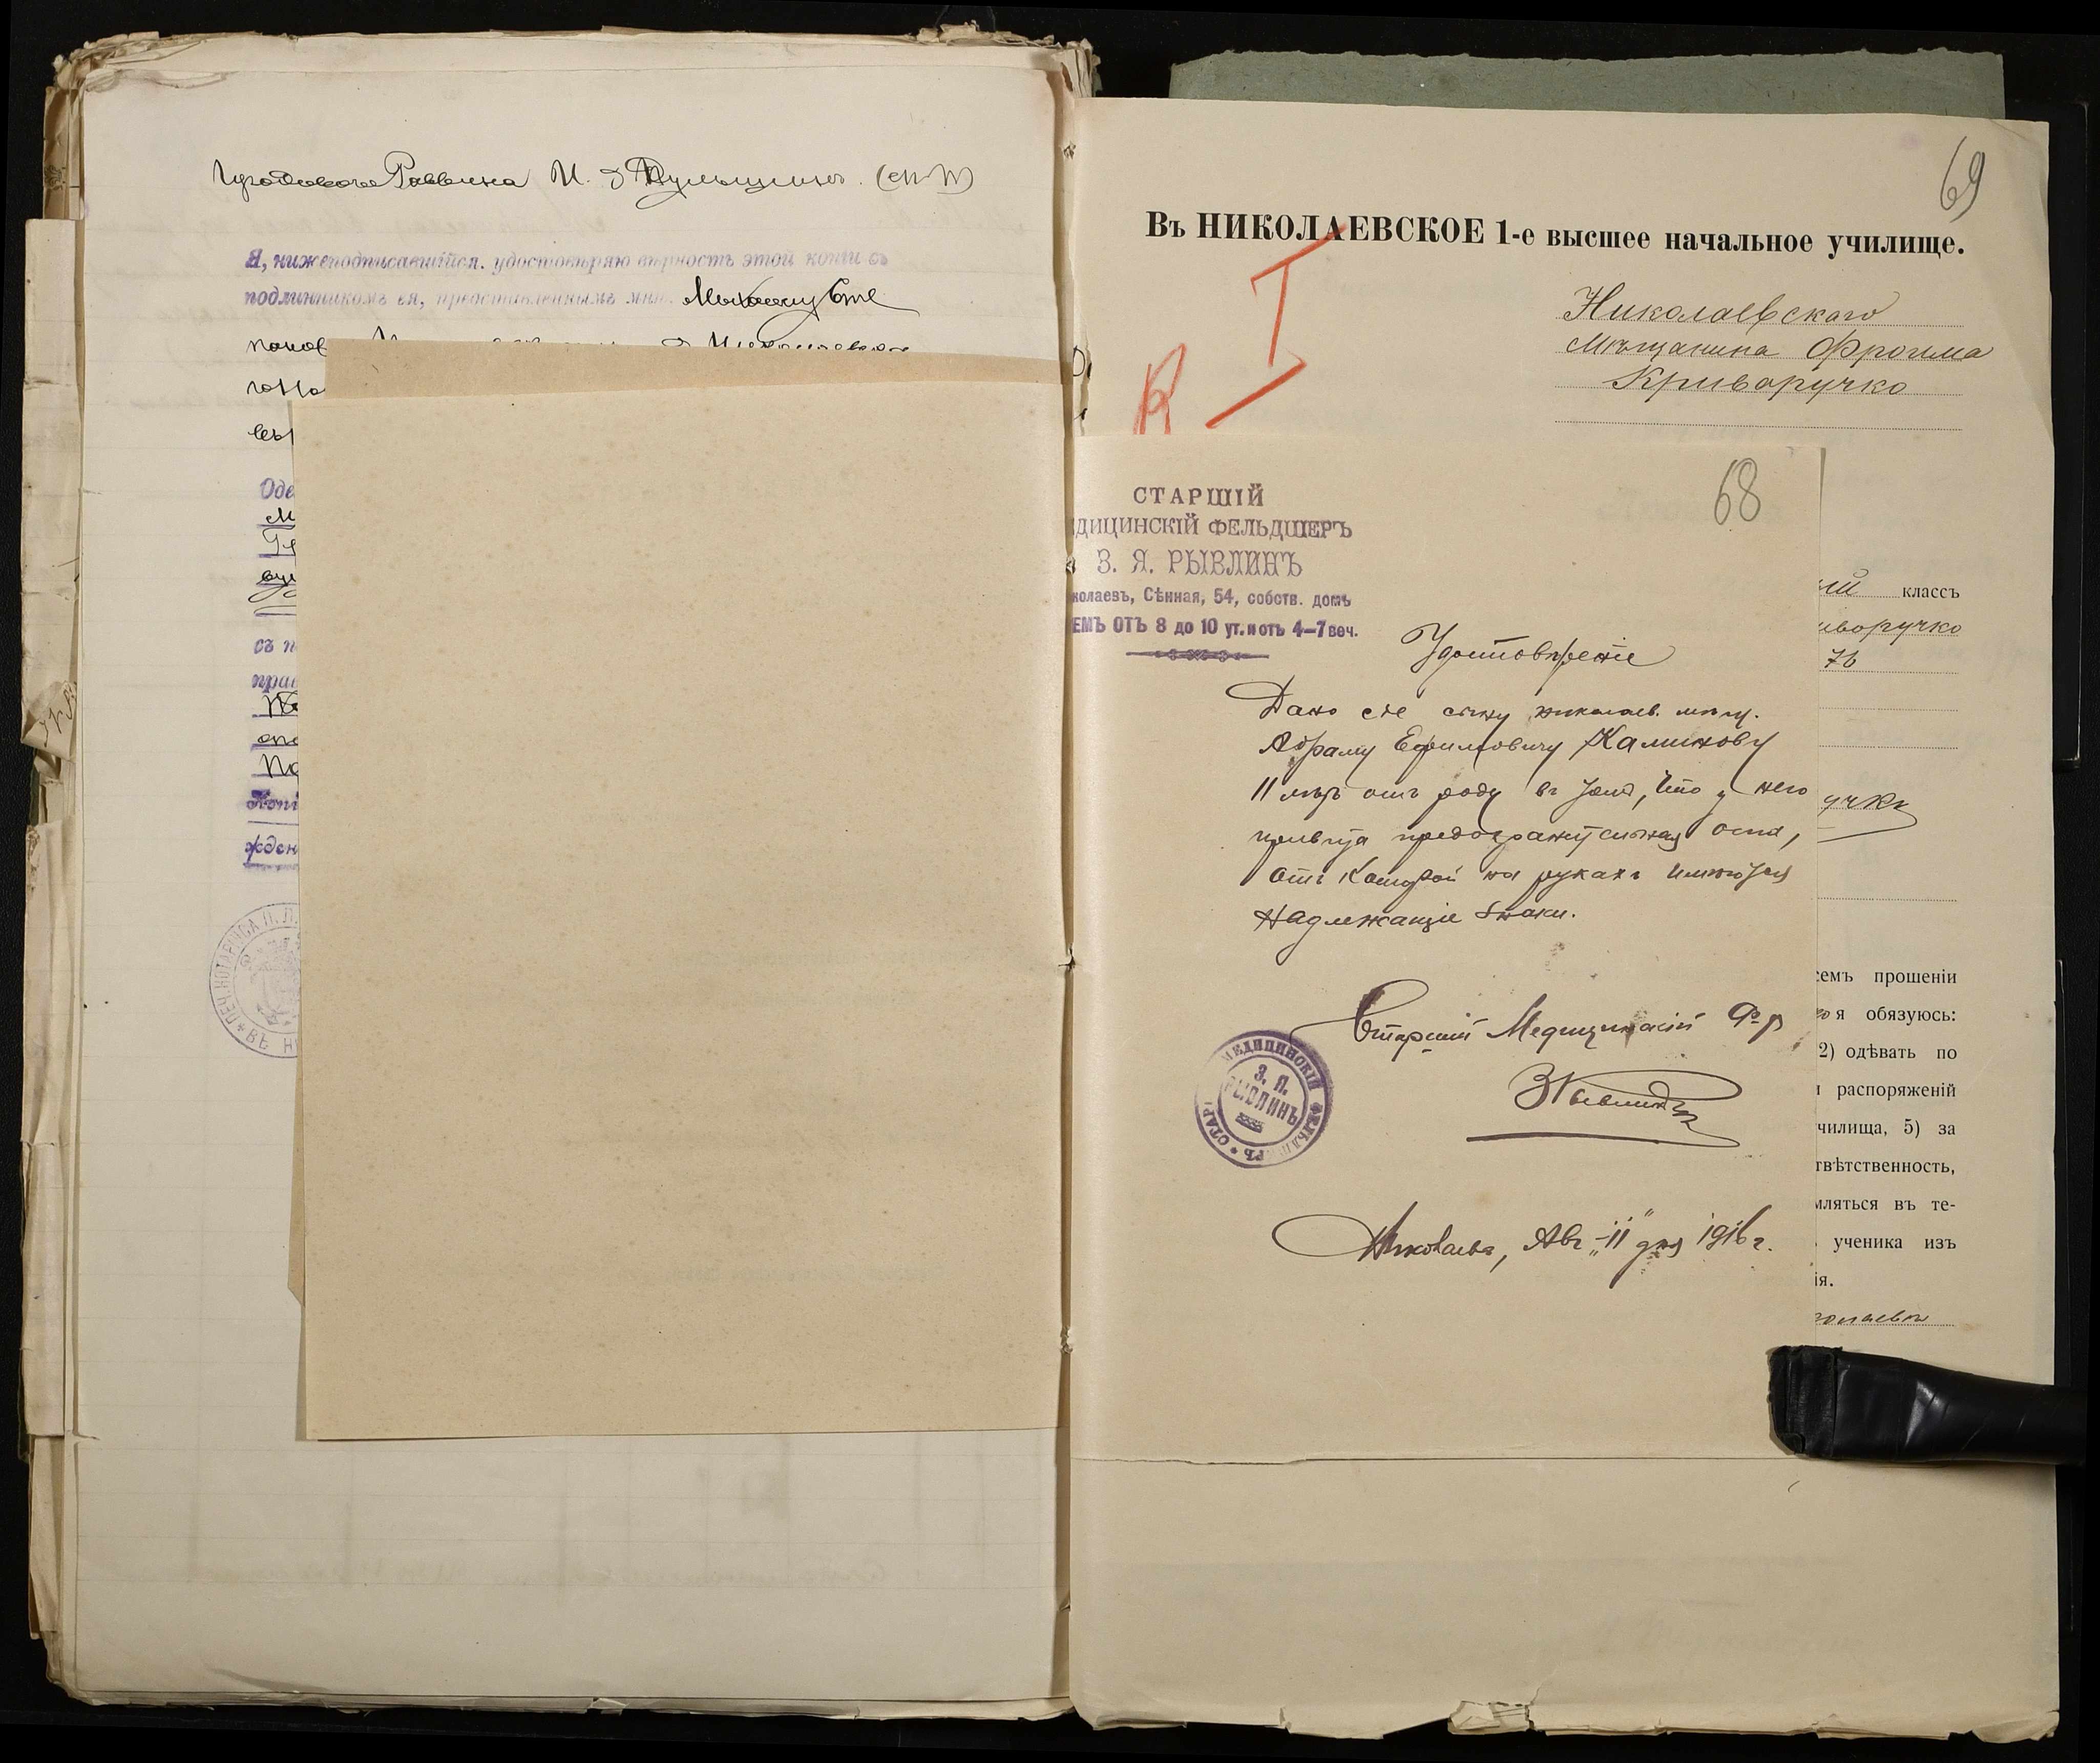 Городового Раввина И. д
Я, нижеподписавшійся, удостовѣряю вѣрность этой копіи съ
подлинникомъ ея, представленнымъ мнѣ
Оде
съ п
прав
Копі
жден
69
Въ НИКОЛАЕВСКОЕ 1-е высшее начальное училище.
I
Николаевскаго
Мѣщанина Фроима
Криваручко
68
СТАРШІЙ
ДИЦИНСКІЙ ФЕЛЬДШЕРЪ
З. Я. РЫВЛИНЪ
колаевъ, Сѣнная, 54, собств. домъ
ЕМЪ ОТЪ 8 до 10 ут. и отъ 4—7 веч.
Удостовѣреніе
Дано сіе сыну николаев. мѣщ.
Абраму Ефимовичу Калинову
11 лѣтъ отъ роду въ томъ, что у него
привита предохранительная оспа,
отъ которой на рукахъ имѣются
надлежащіе знаки.
Старшій Медицинскій Ф-р
ЗРывлинъ
МЕДИЦИНСКІЙ ФЕЛЬДШЕРЪ * СТАР
З. Я.
РЫВЛИНЪ
Николаевъ, Авг. „11" дня 1916 г.
ый классъ
иворучко
76
учко
семъ прошеніи
я обязуюсь:
2) одѣвать по
распоряженій
чилища, 5) за
твѣтственность,
мляться въ те-
ученика изъ
ія.
колаевъ